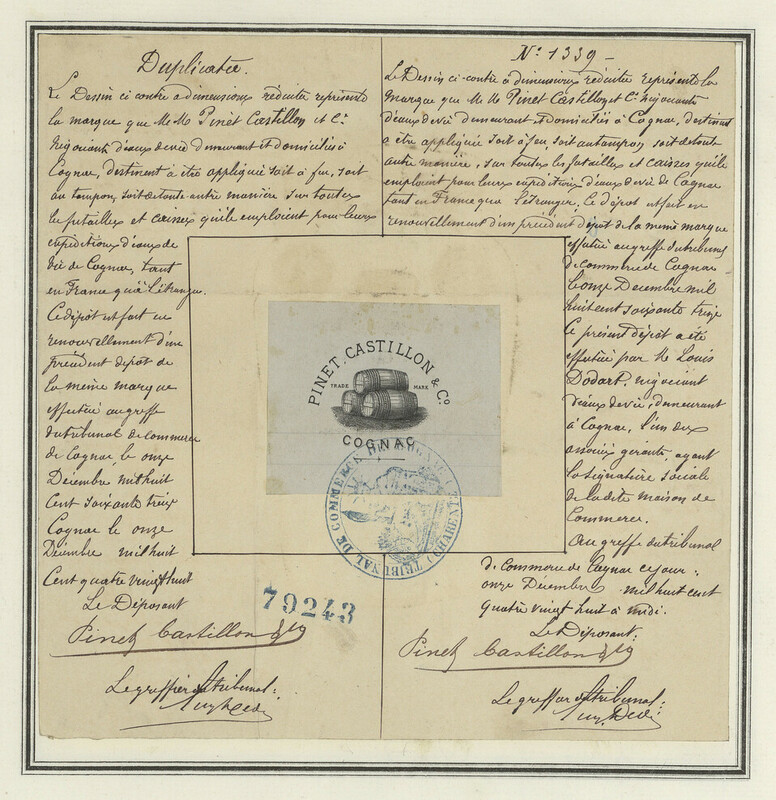 Duplicata.
Le Dessin ci contre a dimensions réduites représente
la marque que M.M. Pinet Castillon et Cie
négociants d'eaux de vie demeurant et domiciliés à
Cognac, destinent à être appliquée soit à feu, soit
au tampon, soit de toute autre manière sur toutes
les futailles et caisses qu'ils emploient pour leurs
expéditions d'eaux de
vie de Cognac, tant
en France qu'à l'étranger.
Ce dépôt est fait en
renouvellement d'un
précédent dépôt de
la même marque
effectué au greffe
du tribunal de commerce
de Cognac, le onze
Décembre mil huit
cent soixante treize
Cognac le onze
Décembre mil huit
Cent quatre vingt huit
Le Déposant
Pinet Castillon & Co
Le greffier du tribunal:
79243
PINET, CASTILLON & Co
TRADE MARK
COGNAC
TRIBUNAL DE COMMERCE DE COGNAC (CHARENTE)
No 1339 -
Le Dessin ci-contre a dimensions réduites représente la
marque que M.M. Pinet Castillon et Cie négociants
d'eaux de vie demeurant et domiciliés à Cognac, destinent
a être appliquée soit à feu, soit au tampon, soit de toute
autre manière, sur toutes les futailles et caisses qu'ils
emploient pour leurs expéditions d'eaux de vie de Cognac
tant en France qu'a l'étranger. Ce dépôt est fait en
renouvellement d'un précédent dépot de la même marque
effectué au greffe du tribunal
de commerce de Cognac
le onze Décembre mil
huit cent soixante treize
Le présent dépôt a été
effectué par M. Louis
Dodart, négociant
d'eaux de vie, demeurant
à Cognac, l'un des
associés gérants, ayant
la signature sociale
de la dite maison de
Commerce.
Au greffe du tribunal
de commerce de Cognac ce jour:
onze Décembre mil huit cent
quatre vingt huit à midi.
Le Déposant:
Pinet Castillon & Co
Le greffier du tribunal: